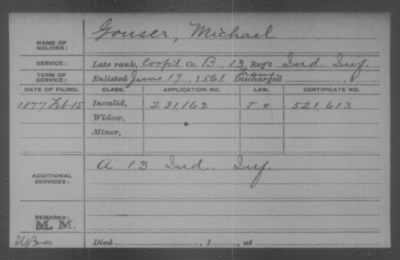 Gouser, Michael
NAME OF SOLDIER:
SERVICE: Late rank, Corp'l Co. B, 13 Reg't Ind. Inf.
TERM OF SERVICE: Enlisted June 19, 1861 Discharged
DATE OF FILING. CLASS. APPLICATION NO. LAW. CERTIFICATE NO.
1877 Feb 15 Invalid, 231,162 521,613
Widow,
Minor,
ADDITIONAL SERVICES: A 13 Ind. Inf.
REMARKS:
M. M.
Died , 1 , at